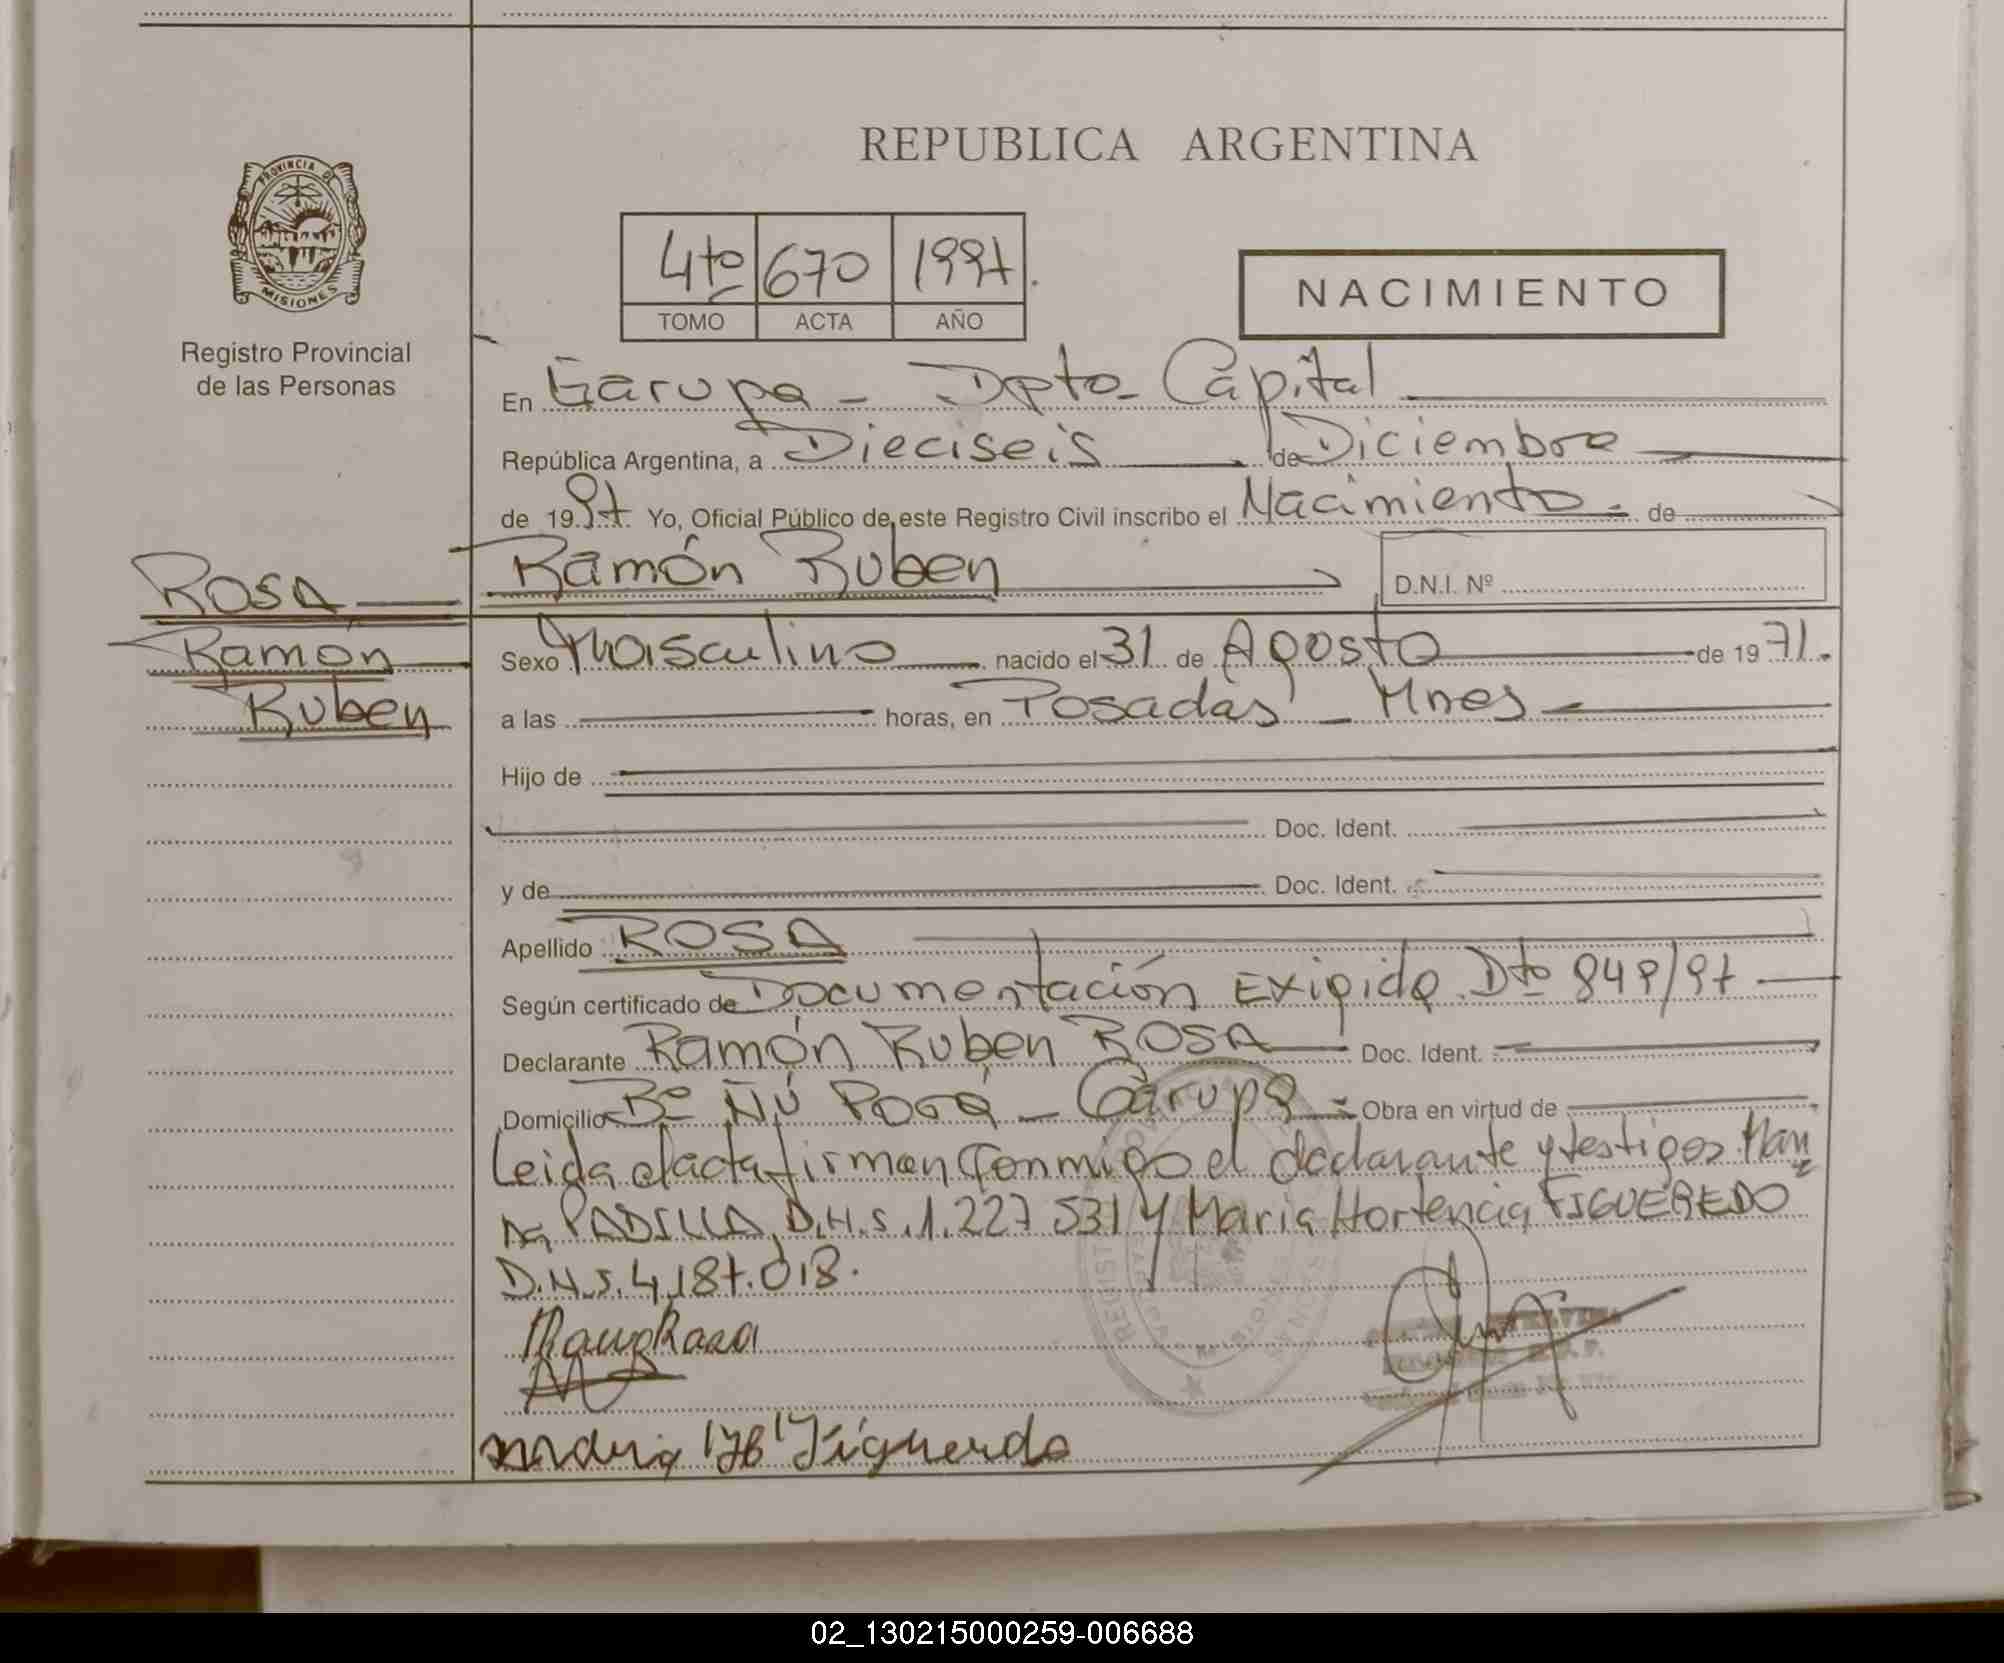 REPUBLICA ARGENTINA
PROVINCIA DE
MISIONES
Registro Provincial
de las Personas
4to 670 1997.
TOMO ACTA AÑO
NACIMIENTO
En Garupa - Dpto. Capital
República Argentina, a Dieciseis de Diciembre
de 1997. Yo, Oficial Público de este Registro Civil inscribo el Nacimiento de
Ramón Ruben
D.N.I. Nº
ROSA
Ramon
Ruben
Sexo Masculino nacido el 31 de Agosto de 1971.
a las horas, en Posadas - Mnes
Hijo de
Doc. Ident.
y de Doc. Ident.
Apellido ROSA
Según certificado de Documentación Exigida Dto 849/97
Declarante Ramón Ruben ROSA Doc. Ident.
Domicilio Bº Ñú Porá - Garupa Obra en virtud de
Leida el acta firman conmigo el declarante y testigos
PADILLA, D.N.I. 1.227 531 y Maria Hortencia FIGUEREDO
D.N.I. 4.187.018.
Rosa